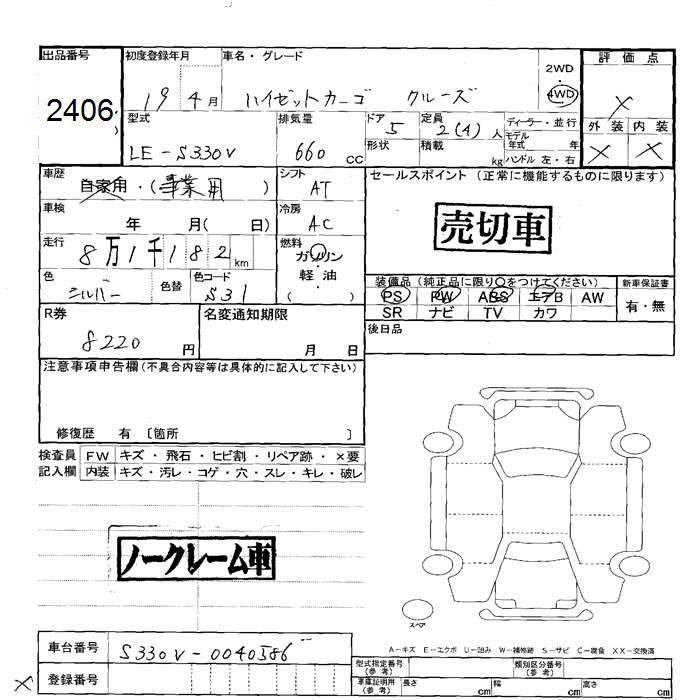 出品番号
2406
初度登録年月
19 4月
車名・グレード
ハイゼットカーゴ クルーズ
2WD
4WD
評価点
X
外装 内装
X X
型式
LE-S330V
排気量
660 CC
ドア
5
形状
定員
2(4)人
積載
kg
ディーラー・並行
モデル
年式 年
ハンドル 左・右
車歴
自家用・(事業用 )
シフト
AT
車検
年 月( 日)
冷房
AC
走行
8万1千182km
燃料
ガソリン
軽油
( )
色
シルバー
色替
色コード
S31
R券
8220円
名変通知期限
月 日
セールスポイント(正常に機能するものに限ります)
売切車
装備品(純正品に限り〇をつけてください)
PS PW ABS エアB AW
SR ナビ TV カワ
新車保証書
有・無
後日品
注意事項申告欄(不具合内容等は具体的に記入して下さい)
修復歴 有〔箇所 〕
検査員
記入欄
FW キズ・飛石・ヒビ割・リペア跡・×要
内装 キズ・汚レ・コゲ・穴・スレ・キレ・破レ
ノークレーム車
スペア
A-キズ E-エクボ U-凹み W-補修跡 S-サビ C-腐食 XX-交換済
車台番号
S330V-0040586
登録番号
X
型式指定番号
(参考)
類別区分番号
(参考)
車庫証明用
(参考)
長さ cm
幅 cm
高さ cm